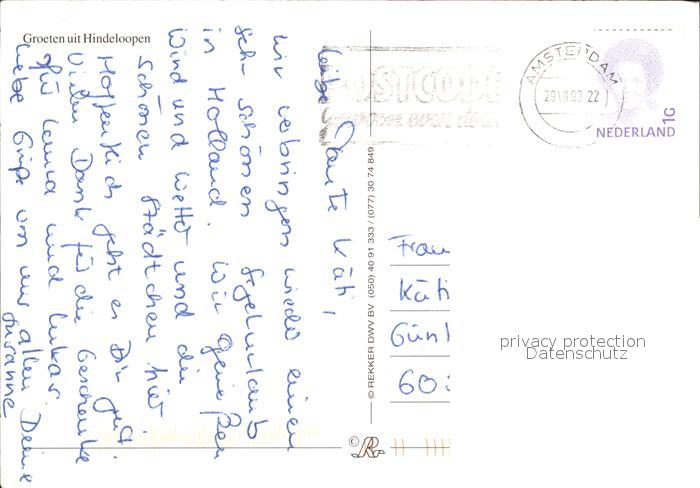 Groeten uit Hindeloopen
liebe Tante Käti,
wir verbringen wieder einen
sehr schönen Segelurlaub
in Holland. Wir genießen
Wind und Wetter und die
schönen Städtchen hier.
Hoffentlich geht es Dir gut.
Vielen Dank für die Geschenke
für Lanna und Lukas.
liebe Grüße von uns allen Deine
Susanne
© REKKER DWV BV (050) 40 91 333 / (077) 30 74 849
POSTCODE
even
AMSTERDAM
22
NEDERLAND
1G
Frau
Käti
Günt
60
privacy protection
Datenschutz
©R